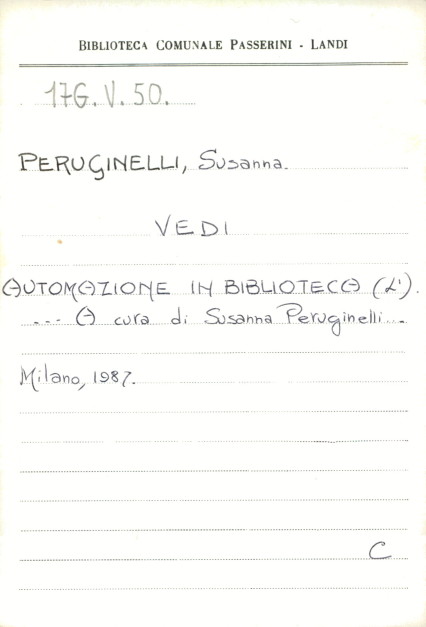 BIBLIOTECA COMUNALE PASSERINI - LANDI
17G.V.50.
PERUGINELLI, Susanna.
VEDI
AUTOMAZIONE IN BIBLIOTECA (L').
--- A cura di Susanna Peruginelli...
Milano, 1987.
C